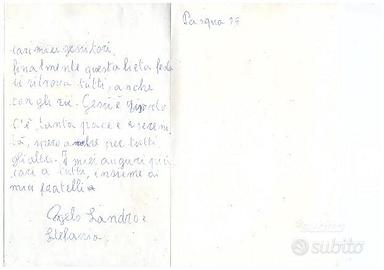 Pasqua 79
cari miei genitori,
finalmente questa lieta festa
ci ritrova tutti, anche
con gli zii. Gesù è risorto
c'è tanta pace e sereni
tà, spero anche per tutti
gli altri. I miei auguri più
cari a tutti, insieme ai
miei fratelli
Sandro e
Stefania
subito
subito